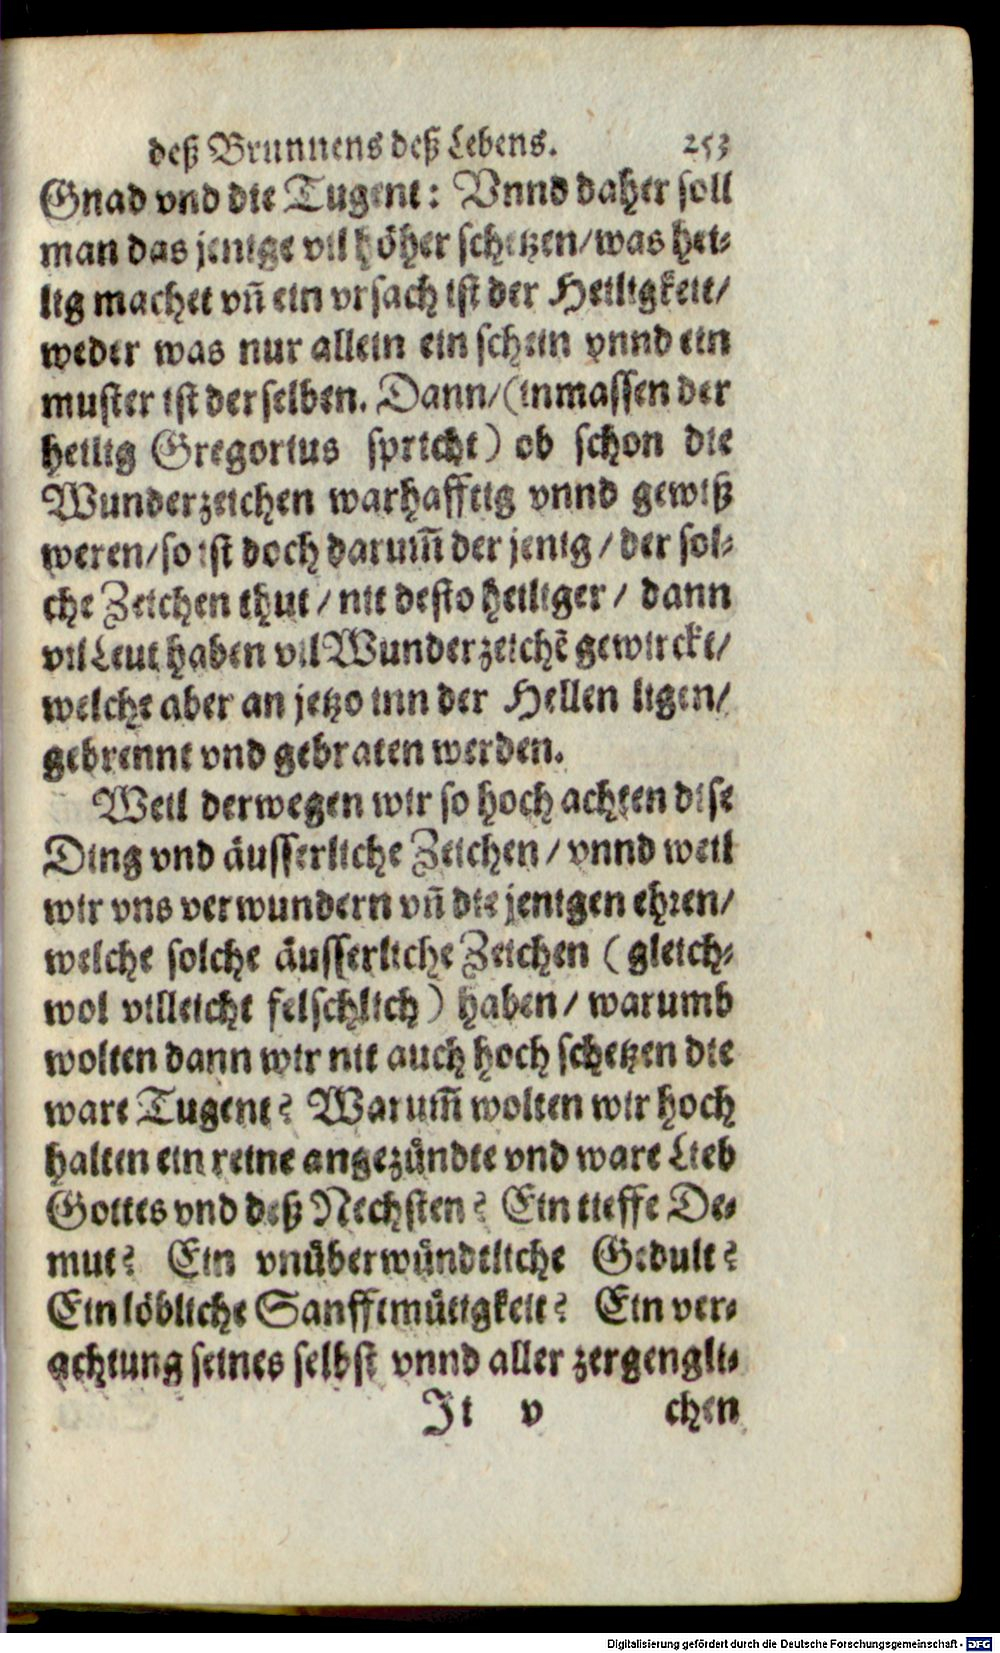 deß Brunnens deß Lebens. 253
Gnad vnd die Tugent: Vnnd daher soll
man das jenige vil höher schetzen/was hei-
lig machet vñ ein vrsach ist der Heiligkeit/
weder was nur allein ein schein vnnd ein
muster ist derselben. Dann/(inmassen der
heilig Gregorius spricht) ob schon die
Wunderzeichen warhafftig vnnd gewiß
weren/so ist doch darum̃ der jenig/der sol-
che Zeichen thut/nit desto heiliger/dann
vil Leut haben vil Wunderzeichẽ gewirckt/
welche aber an jetzo inn der Hellen ligen/
gebrennt vnd gebraten werden.
Weil derwegen wir so hoch achten dise
Ding vnd äusserliche Zeichen/vnnd weil
wir vns verwundern vñ die jenigen ehren/
welche solche äusserliche Zeichen (gleich-
wol villeicht felschlich) haben/warumb
wolten dann wir nit auch hoch schetzen die
ware Tugent? Warum̃ wolten wir hoch
halten ein reine angezündte vnd ware Lieb
Gottes vnd deß Nechsten? Ein tieffe De-
mut? Ein vnüberwündtliche Gedult?
Ein löbliche Sanfftmütigkeit? Ein ver-
achtung seines selbst vnnd aller zergengli-
Ji v chen
Digitalisierung gefördert durch die Deutsche Forschungsgemeinschaft - DFG